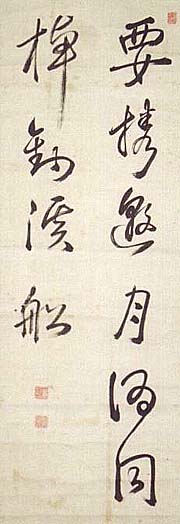 要携邀月酒同
棹釣溪船